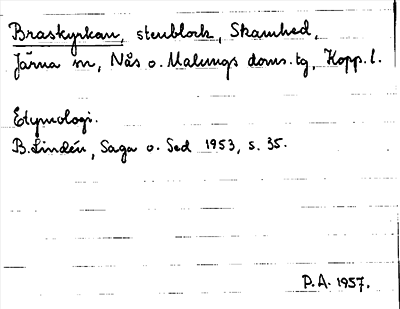 Braskyrkan, stenblock, Skamhed,
Järna sn, Nås o. Malungs doms.tg, Kopp. l.
Etymologi.
B. Lindén, Saga o. Sed 1953, s. 35.
P.A. 1957.